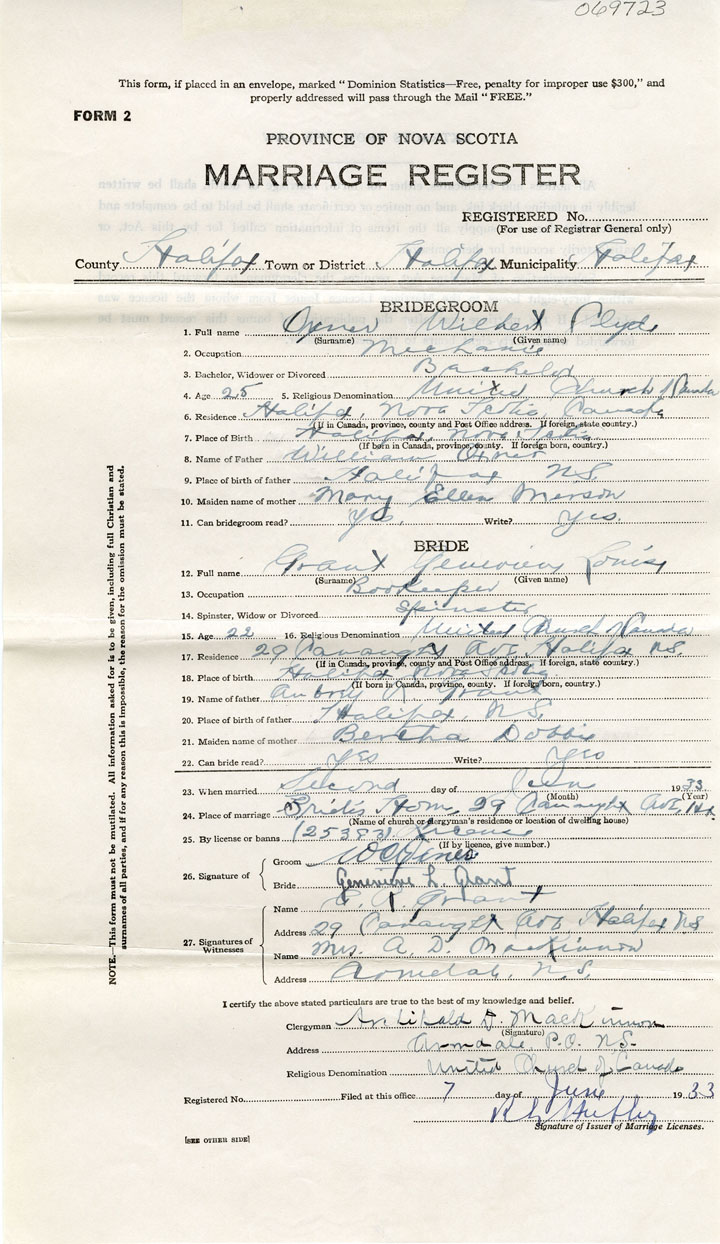 069723
This form, if placed in an envelope, marked “Dominion Statistics—Free, penalty for improper use $300,” and
properly addressed will pass through the Mail “FREE.”
FORM 2
PROVINCE OF NOVA SCOTIA
MARRIAGE REGISTER
REGISTERED No.
(For use of Registrar General only)
County Halifax Town or District Halifax Municipality Halifax
BRIDEGROOM
1. Full name Wilbert Clyde
(Surname) (Given name)
2. Occupation Mechanic
3. Bachelor, Widower or Divorced Bachelor
4. Age 25 5. Religious Denomination United Church of Canada
6. Residence Halifax, Nova Scotia, Canada
(If in Canada, province, county and Post Office address. If foreign, state country.)
7. Place of Birth Halifax, Nova Scotia
(If born in Canada, province, county. If foreign born, country.)
8. Name of Father William
9. Place of birth of father Halifax N.S.
10. Maiden name of mother Mary Ellen Merson
11. Can bridegroom read? Yes. Write? Yes.
BRIDE
12. Full name Grant Genevieve Louise
(Surname) (Given name)
13. Occupation Bookkeeper
14. Spinster, Widow or Divorced Spinster
15. Age 22 16. Religious Denomination United Church of Canada
17. Residence 29 Ave, Halifax N.S.
(If in Canada, province, county and Post Office address. If foreign, state country.)
18. Place of birth Halifax Nova Scotia
(If born in Canada, province, county. If foreign born, country.)
19. Name of father Grant
20. Place of birth of father Halifax, N.S.
21. Maiden name of mother Bertha Dobbie
22. Can bride read? Yes Write? Yes
23. When married Second day of June 1933
(Month) (Year)
24. Place of marriage Bride's Home, 29 Ave, Hx.
(Name of church or clergyman's residence or location of dwelling house)
25. By license or banns (25383) License
(If by licence, give number.)
26. Signature of
Groom
Bride Genevieve L. Grant
27. Signatures of Witnesses
Name Grant
Address 29 Ave Halifax NS
Name Mrs. A. D. MacKinnon
Address Armdale, N.S.
I certify the above stated particulars are true to the best of my knowledge and belief.
Clergyman Archibald D. MacKinnon
(Signature)
Address Armdale, P.O. N.S.
Religious Denomination United Church of Canada
Registered No. Filed at this office 7 day of June 1933
Signature of Issuer of Marriage Licenses.
[SEE OTHER SIDE]
NOTE.—This form must not be mutilated. All information asked for is to be given, including full Christian and
surnames of all parties, and if for any reason this is impossible, the reason for the omission must be stated.